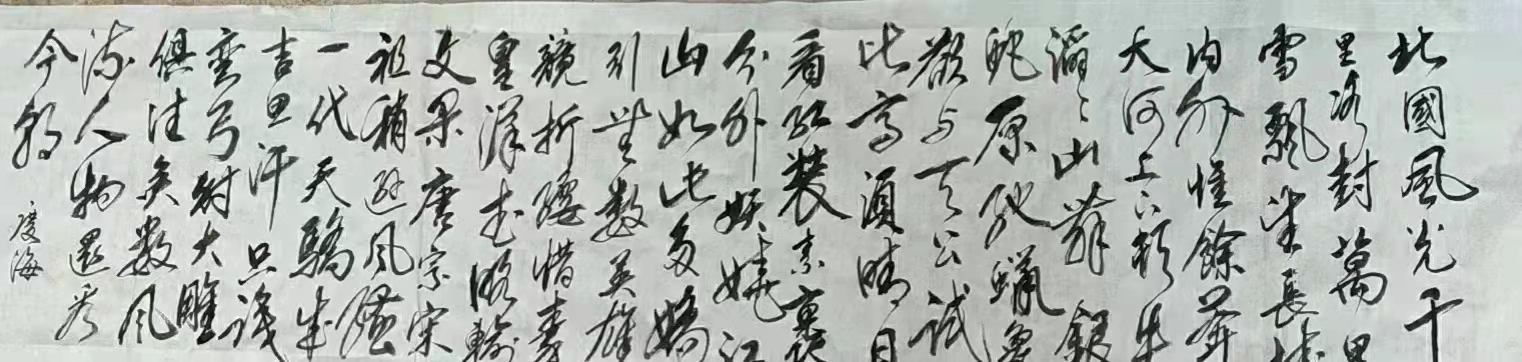 北國風光千
里冰封萬里
雪飄望長城
内外惟餘莽
大河上下頓失
滔〻山舞銀
蛇原馳蠟象
欲与天公試
比高須晴日
看紅裝素裹
分外妖嬈江
山如此多嬌
引無數英雄
競折腰惜秦
皇漢武略輸
文采唐宗宋
祖稍遜風騷
一代天驕成
吉思汗只識
彎弓射大雕
俱往矣數風
流人物還看
今朝
度海